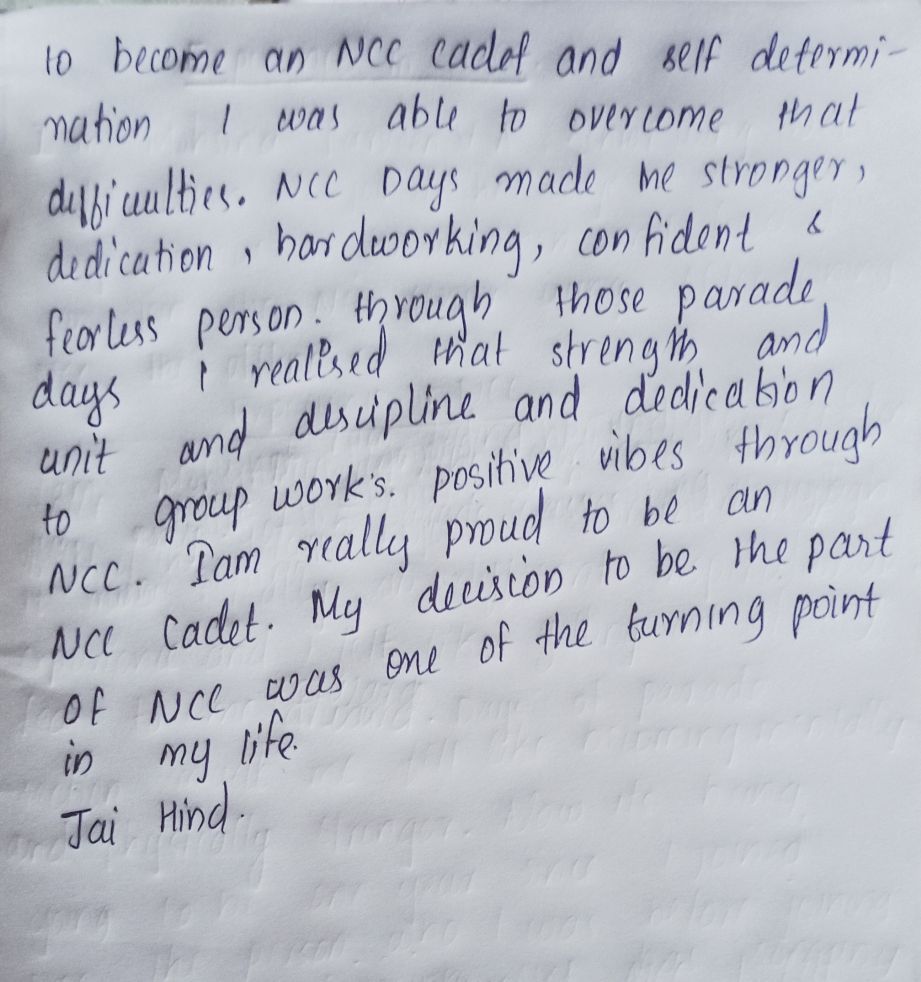 to become an NCC cadet and self determi-
nation I was able to overcome that
difficulties. NCC Days made me stronger,
dedication, hardworking, confident &
fearless person. through those parade
days I realised that strength and
unit and descipline and dedication
to group work's. positive vibes through
NCC. I am really proud to be an
NCC Cadet. My decision to be the part
of NCC was one of the turning point
in my life.
Jai Hind.